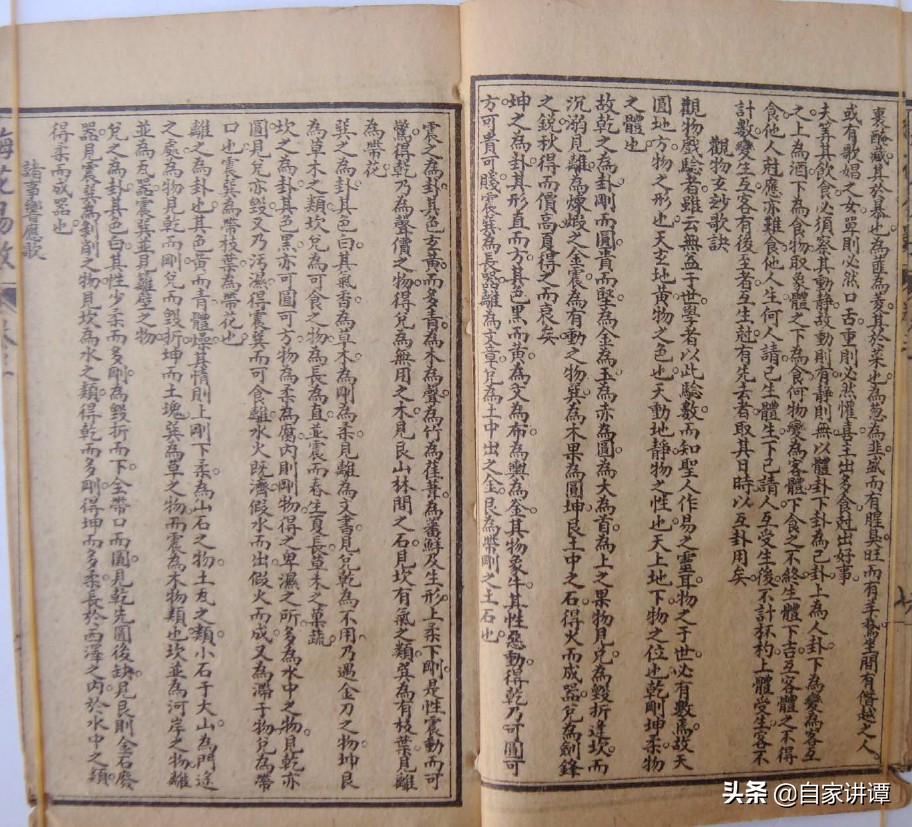 裹醃藏其於暴也為薤為菱其於菜也為葱為韭蒜而有腥其旺而有手為坐間有僭越之人
或有歌娼之女單則必然口舌重則必然懼喜生出多食尅出好事
夫算其飲食必須察其動靜故動則有靜則無以體卦下卦為己卦上為人卦下為變為客互
之上為酒下為食物取象體之下為食何物變為客體下食之不終生體下吉互客體之不得
食他人尅應亦難食他人生何人請己生體生下己請人互受生後不計杯杓上體受生客不
計數變生互客有後至者互生尅有先去者取其日時以互卦用矣
觀物玄玅歌訣
觀物戲驗者雖云無益于世學者以此驗數而知聖人作易之靈耳物之于世必有數焉故天
圓地方物之形也天玄地黃物之色也天動地靜物之性也天上地下物之位也乾剛坤柔物
之體也
故乾之為卦剛而圓貴而堅為金為玉為赤為圓為大為首為上之果物見兌為毀折逢坎而
沉溺見離為煉煅之金震為有動之物巽為木果為圓坤艮土中之石得火而成器兌為劍鋒
之鋭秋得而價高夏得之而衰矣
坤之為卦其形直而方其色黑而黃為文為布為輿為釜其物象牛其性惡動得乾乃可圓可
方可貴可賤震巽為長器離為文章兌為土中出之金艮為帶剛之土石也
震之為卦其色玄黃而多青為木為聲為竹為萑葦為蕃鮮及生形上柔下剛是性震動而可
驚得乾乃為聲價之物得兌為無用之木見艮山林間之石見坎有氣之類巽為有枝葉見離
為帶花
巽之為卦其色白其氣香為草木為剛為柔見離為文書見兌乾為不用乃遇金刀之物坤艮
為草木之類坎兌為可食之物為長為直並震而春生夏長草木之菓蔬
坎之為卦其色黑亦可圓可方物為柔為腐內則剛物得之卑濕之所多為水中之物見乾亦
圓見兌亦毀又乃污濕得震巽而可食離水火既濟假水而出假火而成又為滯于物兌為帶
口也震巽為帶枝葉為帶花也
離之為卦也其色黃而青體燥其情則上剛下柔為山石之物土瓦之類小石于大山為門途
之處為物見乾而剛兌而毀折坤而土塊巽為草之物而震為木物類也坎並為河岸之物離
並為瓦器震巽並見籬壁之物
兌之為卦其色白其性少柔而多剛為毀折而下金帶口而圓見乾先圓後缺見艮則金石廢
器見震巽為剝削之物見坎為水之類得乾而多剛得坤而多柔長於西澤之內於水中之類
得柔而成器也
諸事響應歌
頭条 @自家讲谭